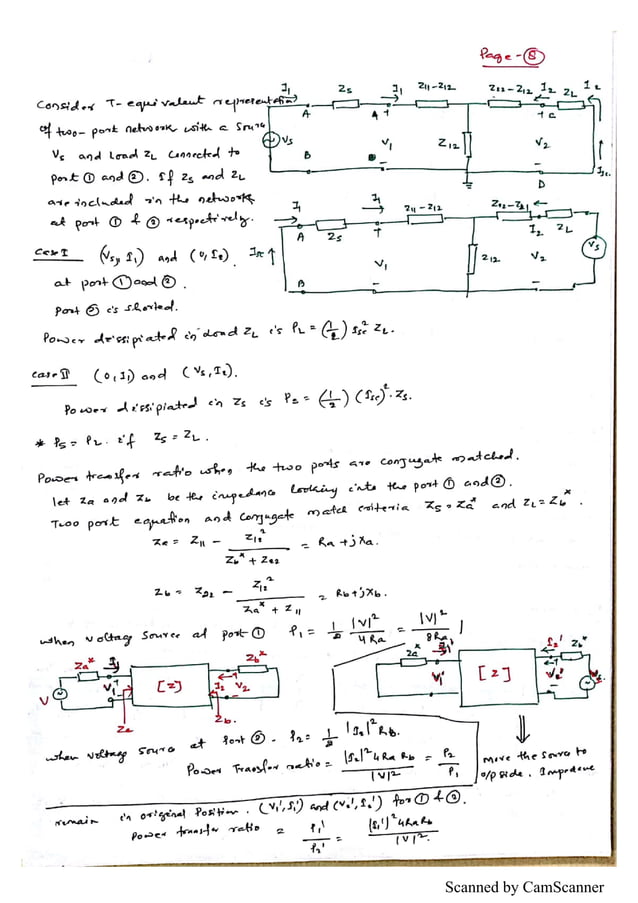 Page-⑧
Consider T-equivalent representation
of two-port network with a source
Vs and Load ZL connected to
port ① and ②. If Zs and ZL
are included in the network
at port ① & ② respectively.
I1 Zs I1 Z11-Z12 Z22-Z12 I2 ZL I2
A A + + C
Vs V1 Z12 V2 Isc
B - - D
I1 I1 Z11-Z12 Z22-Z21
A Zs + I2 ZL
Isc V1 Z12 V2 Vs
B - -
Case I (Vs, I1) and (0, I2)
at port ① and ②.
Port ② is shorted.
Power dissipiated in Load ZL is PL = (1/2) Isc² ZL.
Case II (0, I1) and (Vs, I2).
Power dissipiated in Zs is Ps = (1/2) (Isc)². Zs.
* Ps = PL if Zs = ZL.
Power transfer ratio when the two ports are conjugate matched.
let Za and Zb be the impedance looking into the port ① and ②.
Two port equation and conjugate match criteria Zs = Za* and ZL = Zb*
Za = Z11 - Z12² / (Zb* + Z22) = Ra + jXa.
Zb = Z22 - Z12² / (Za* + Z11) = Rb + jXb.
when voltage source at port ① P1 = 1/2 |V|²/4Ra = |V|²/8Ra
Za* I1 Zb* Za* I1' I2' Zb*
V V1 [Z] I2 V2 V1' [Z] V2'
Za Zb
when voltage source at Port ②. P2 = 1/2 |I2|² Rb.
Power Transfer ratio = |I2|² 4 Ra Rb / |V|² = P2/P1
Move the source to
o/p side. Impedence
remain in original Position. (V1', I1') and (V2', I2') for ① & ②.
Power transfer ratio = P1'/P2' = |I1'|² 4RaRb / |V|².
Scanned by CamScanner